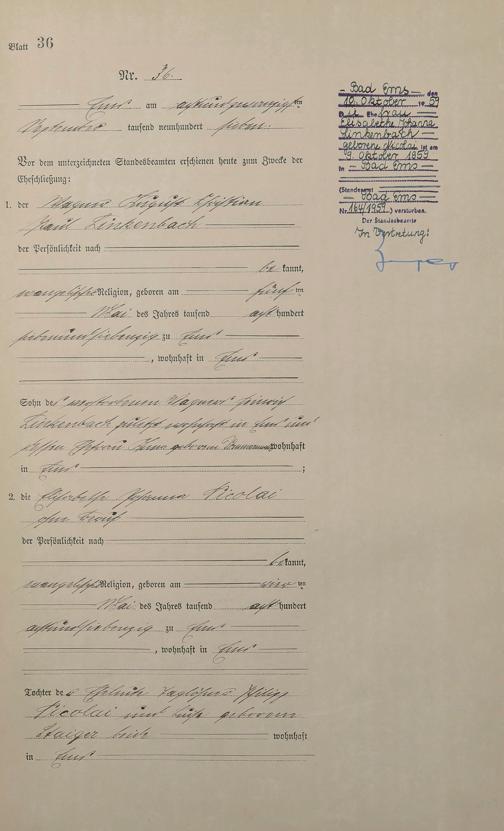 Blatt 36
Nr. 36.
Ems am achtundzwanzigsten
September tausend neunhundert sieben.
Vor dem unterzeichneten Standesbeamten erschienen heute zum Zwecke der
Eheschließung:
1. der Wagner August Christian
Karl Linkenbach
der Persönlichkeit nach
bekannt,
evangelischer Religion, geboren am fünften
Mai des Jahres tausend achthundert
siebenundsiebenzig zu Ems
, wohnhaft in Ems
Sohn des verstorbenen Wagners Heinrich
Linkenbach zuletzt wohnhaft in Ems und
dessen Ehefrau geborenen wohnhaft
in Ems ;
2. die Elisabethe Johanna Nicolai
ohne Beruf
der Persönlichkeit nach
bekannt,
evangelischer Religion, geboren am vierten
Mai des Jahres tausend achthundert
achtundsiebenzig zu Ems
, wohnhaft in Ems
Tochter der Eheleute Taglöhner Philipp
Nicolai und geborenen
Steiger beide wohnhaft
in Ems
Bad Ems, den
10. Oktober 1959
Die Ehefrau
Elisabethe Johanna
Linkenbach
geborene Nicolai ist am
9. Oktober 1959
in Bad Ems
(Standesamt
Bad Ems
Nr. 164/1959) verstorben.
Der Standesbeamte
In Vertretung: